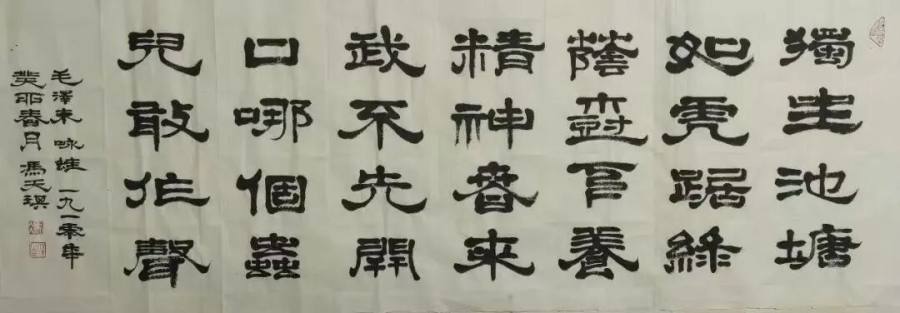 獨坐池塘
如虎踞綠
蔭樹下養
精神春來
我不先開
口哪個蟲
兒敢作聲
毛澤东 咏蛙 一九一零年
癸卯春月馮天琪